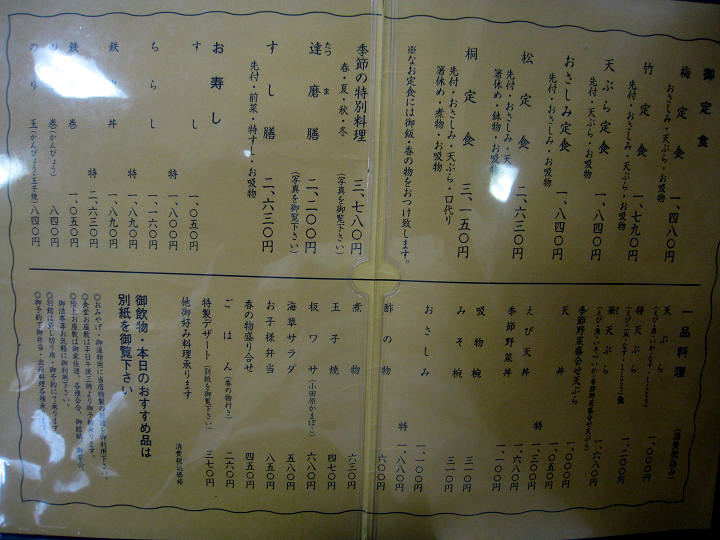 御定食
梅定食 一、四八〇円
おさしみ・天ぷら・お吸物
竹定食 一、七九〇円
先付・おさしみ・天ぷら・お吸物
天ぷら定食 一、八四〇円
先付・天ぷら・お吸物
おさしみ定食 一、八四〇円
先付・おさしみ・お吸物
松定食 二、六三〇円
先付・おさしみ・天ぷら
箸休め・鉢物・お吸物
桐定食 三、一五〇円
先付・おさしみ・天ぷら・口代り
箸休め・煮物・お吸物
※なお定食には御飯・香の物をおつけ致します。
季節の特別料理 三、七八〇円
春・夏・秋・冬 (写真を御覧下さい)
達磨膳 二、二〇〇円
たつま
(写真を御覧下さい)
すし膳 二、六三〇円
先付・前菜・特すし・お吸物
お寿し
すし 一、〇五〇円
特 一、八〇〇円
ちらし 一、一六〇円
特 一、八九〇円
鉄火丼 一、八九〇円
特 二、六三〇円
鉄火巻 一、〇五〇円
のり巻(かんぴょう) 八四〇円
のり玉(かんぴょう・玉子焼) 八四〇円
一品料理 (消費税込み)
天ぷら 一、〇〇〇円
特天ぷら 一、二〇〇円
茶天ぷら 一、六八〇円
季節野菜盛合せ天ぷら 一、〇五〇円
天丼 一、〇〇〇円
特 一、三〇〇円
えび天丼 一、六八〇円
季節野菜丼 一、一〇〇円
吸物椀 三一〇円
みそ椀 三一〇円
おさしみ 一、一〇〇円
特 一、八八〇円
酢の物 六〇〇円
煮物 六三〇円
玉子焼 四七〇円
板ワサ(小田原かまぼこ) 六八〇円
海草サラダ 五八〇円
お子様弁当 八五〇円
香の物盛り合せ 四五〇円
ごはん(香の物付き) 二六〇円
特製デザート(別紙を御覧下さい) 三七〇円
他御好み料理承ります
消費税込価格
御飲物・本日のおすすめ品は
別紙を御覧下さい